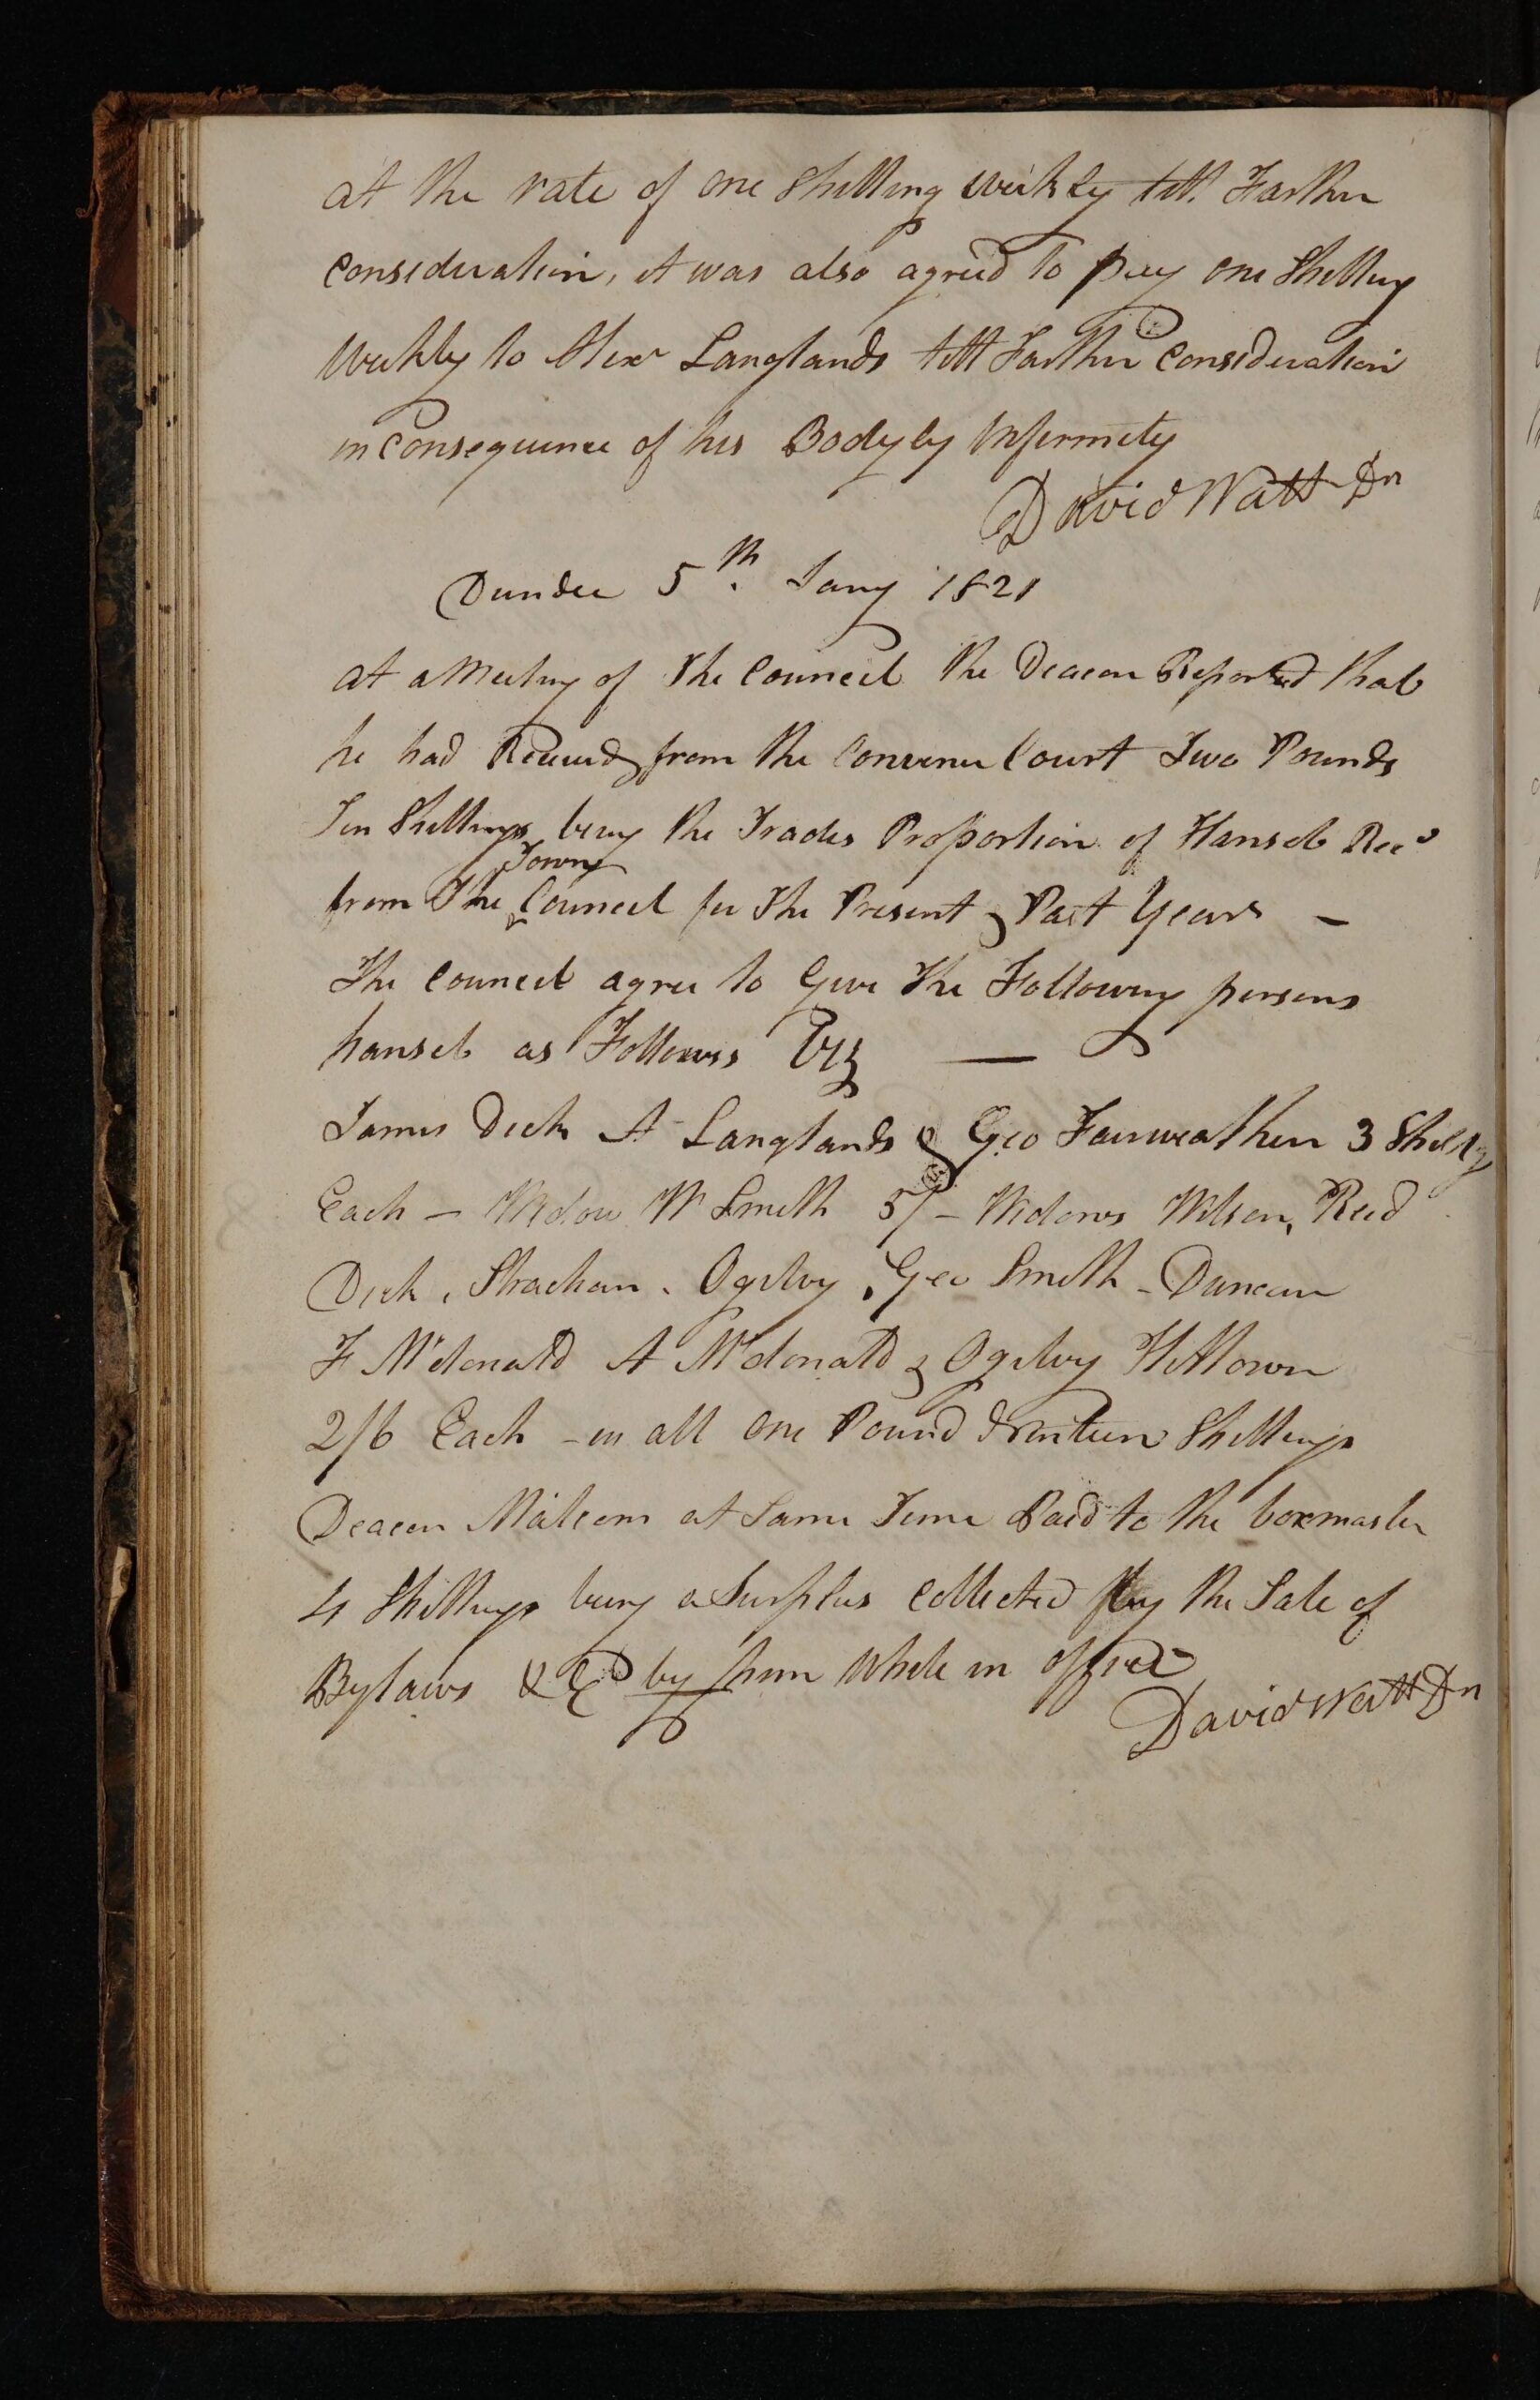 at the rate of one Shilling weekly till Farther
Consideration, it was also agreed to pay one Shilling
Weekly to Alexr Langlands till Farther Consideration
in Consequence of his Bodyly Infirmity
David Watt Dn
Dundee 5th. Jany 1821
at a Meeting of the Council the Deacon Reported that
he had Received from the Convener Court Two Pounds
Ten Shillings being the Trades Proportion of Hansel Recd
from The Town Council for The Present & Past Years —
The Council agree to Give The Following persons
hansel as Followes Viz —
James Dick A Langlands & Geo Fairweather 3 Shillgs
Each — Widow W Smith 5/ — Widows Wilson, Reid
Dick, Strachan, Ogilvy, Geo Smith - Duncan
F McDonald A McDonald & Ogilvy Hilltown
2/6 Each - in all One Pound Nineteen Shillings
Deacon Malcom at Same Time Paid to the boxmaster
4 Shillings being a Surplus Collected by the Sale of
Bylaws &C by him While in office
David Watt Dn